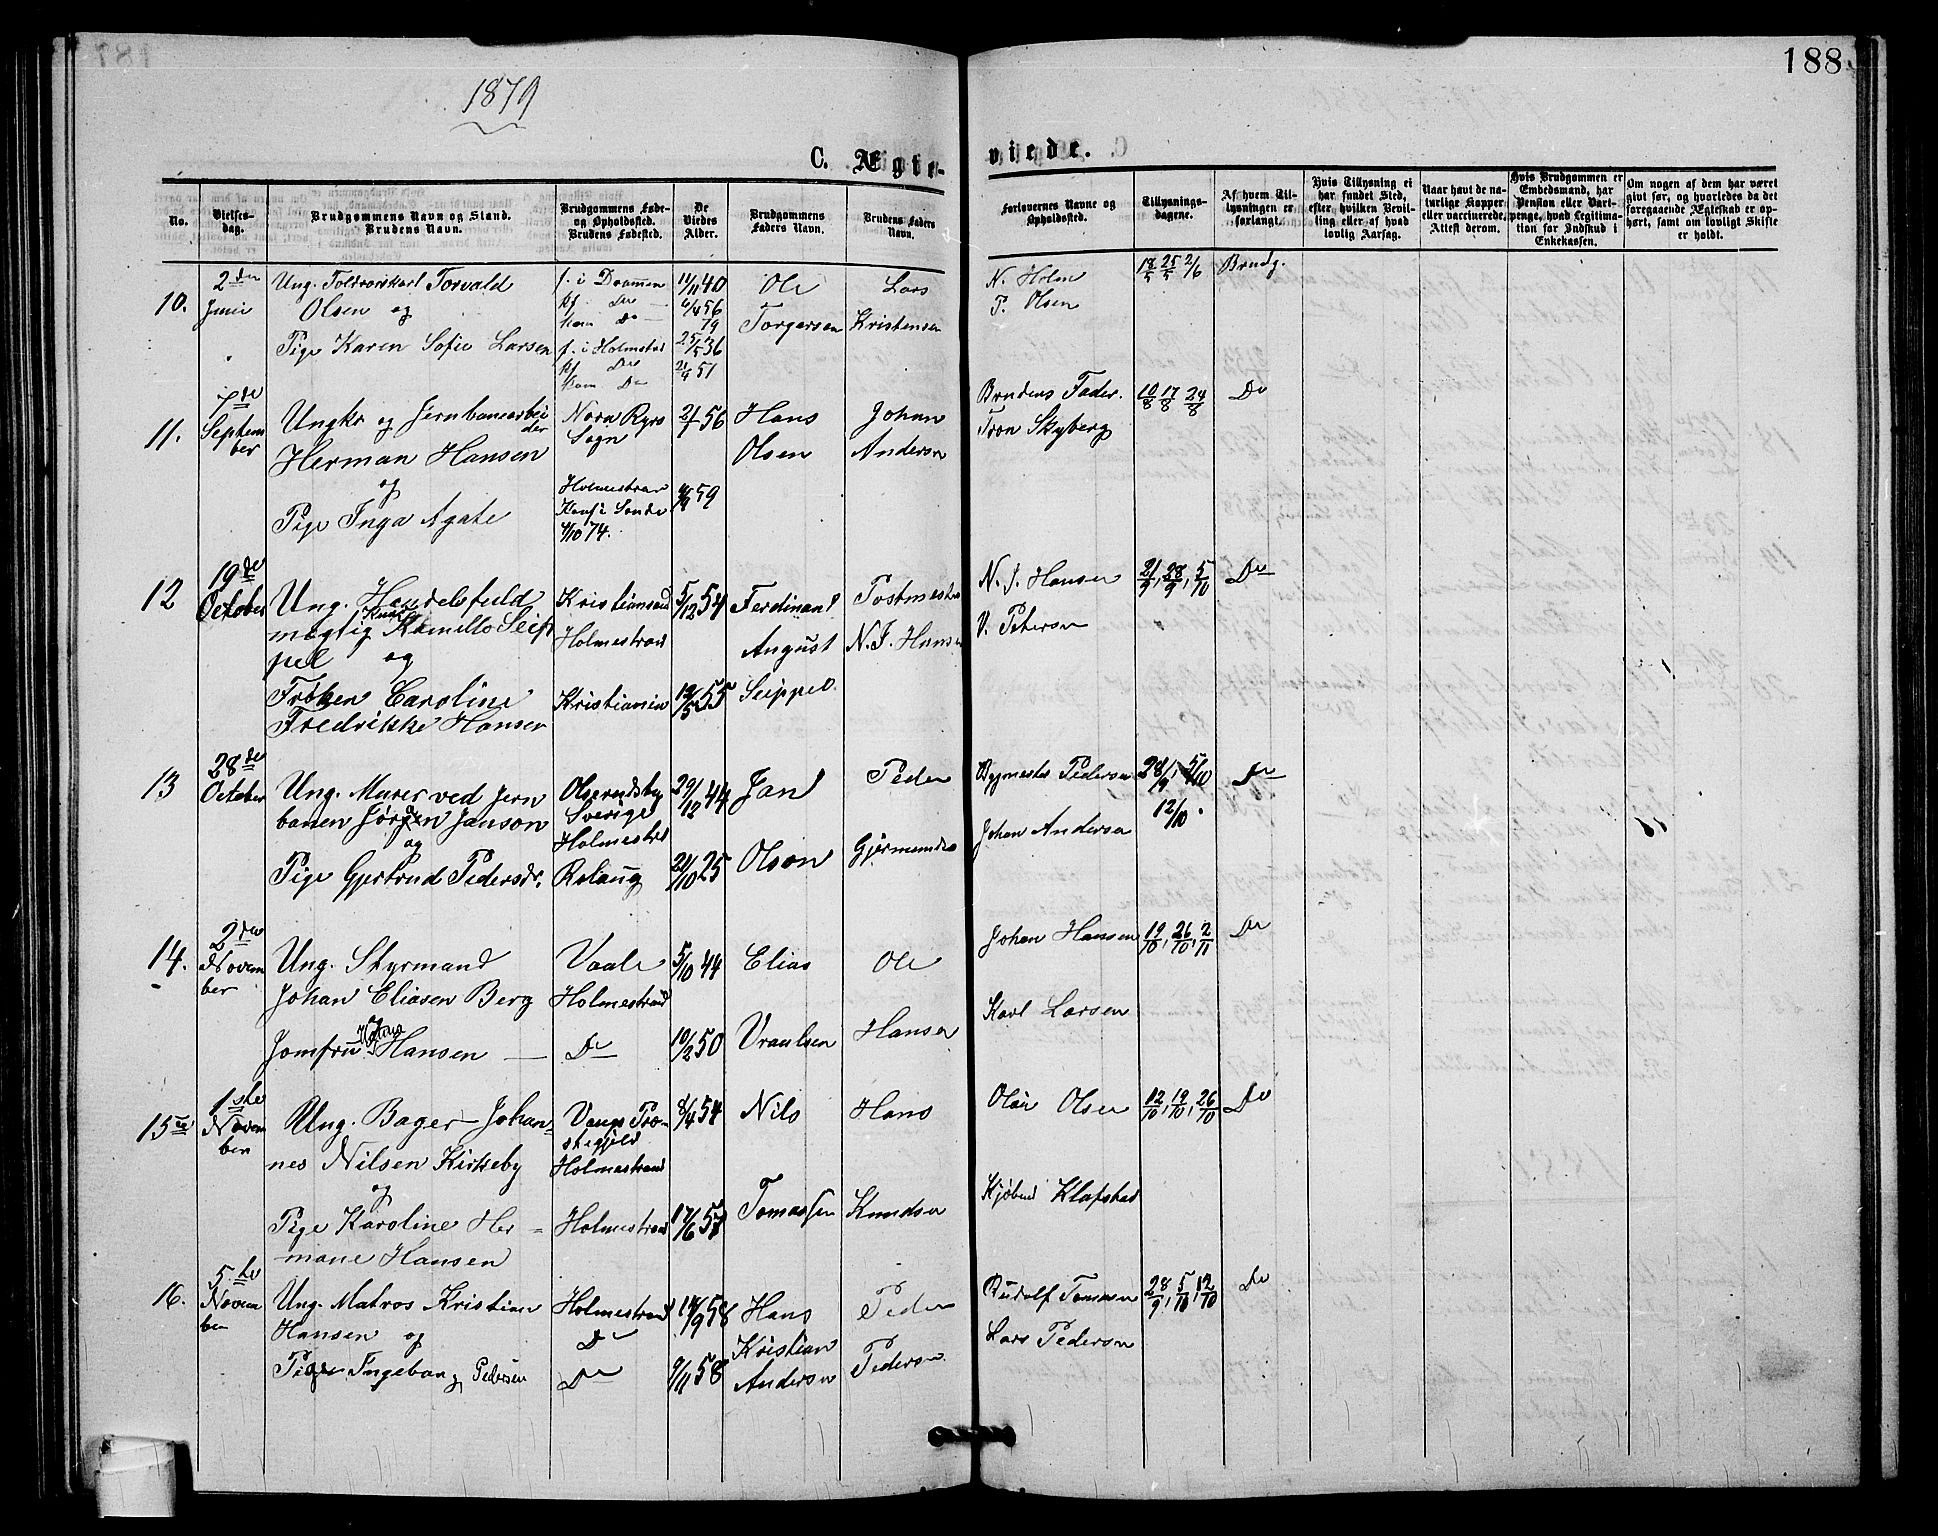 188
1879
C. Ægte-
viede.
No.
Vielses-
dag.
Brudgommens Navn og Stand.
Brudens Navn.
Brudgommens Føde-
og Opholdssted.
Brudens Fødested.
De
Viedes
Alder.
Brudgommens
Faders Navn.
Brudens Faders
Navn.
Forlovernes Navne og
Opholdssted.
Tillysnings-
dagene.
Af hvem Til-
lysningen er
forlangt.
Hvis Tillysning ei
har fundet Sted,
efter hvilken Bevil-
ling eller af hvad
lovlig Aarsag.
Naar havt de na-
turlige Kopper
eller vaccinerede,
Attest derom.
Hvis Brudgommen er
Embedsmand, har
Pension eller Vart-
penge, hvad Legitima-
tion for Indskud i
Enkekassen.
Om nogen af dem har været
givt før, og hvorledes da det
foregaaende Ægteskab er op-
hørt, samt om lovligt Skifte
er holdt.
10.
2den
Juni
Ung. Toldvorskarl Torvald
Olsen og
Pige Karen Sofie Larsen
f. i Drammen
kf. do
kom Do
f. i Holmestrd
kf do
kom Do
11/11 40
6/4 56
79
25/5 36
21/4 51
Ole
Torgersen
Lars
Kristensen
N. Holm
P. Olsen
18/5 25/5 2/6
Brudg.
11.
7de
Septem
ber
Ungkr og Jernbanearbei
der
Herman Hansen
og
Pige Inga Agate
Nora Ryrs
Sogn
Holmestran
Konf i Sande
4/10 74.
21/1 56
59
Hans
Olsen
Johan
Andersen
Brudens Fader
Tron Skyberg
10/8 17/8 24/8
Do
12
19de
October
Ung. Handelsfuld
mægtig Knut Kamillo Seip
pel og
Frøken Caroline
Fredrikke Hansen
Kristiansand
Holmestrand
Kristiania
5/12 54
12/5 55
Ferdinand
August
Seippel
Postmester
N. J. Hansen
N. J. Hansen
V. Petersen
21/9, 28/9, 5/10
Do
13
28de
October
Ung. Murer ved Jern
banen Jörgen Janson
og
Pige Gjertrud Pedersdr.
Olserudsby
Sverige
Holmestrd
Rolaug
29/12 44
21/10 25
Jan
Olson
Peder
Gjermundsen
Bygmester Pedersen
Johan Andersen
28/9, 5/10
12/10.
Do
14.
2den
Novem
ber
Ung. Styrmand
Johan Eliasen Berg
Jomfru Hansen
Vaale
Holmestrand
Do
5/10 44
10/2 50
Elias
Vraalsen
Ole
Hansen
Johan Hansen
Karl Larsen
19/10, 26/10, 2/11
Do
15
1ste
Novem
ber
Ung. Bager Johan-
nes Nilsen Kirkeby
og
Pige Karoline Her-
mane Hansen
Vangs Præ-
stegjeld
Holmestrand
Holmestrand
8/4 54
17/6 57
Nils
Tomassen
Hans
Knudsen
Olai Olsen
Kjøbmd Klafstad
12/10, 19/10, 26/10
Do
16.
5te
Novem
ber
Ung. Matros Kristian
Hansen og
Pige Ingeborg Pedersen
Holmestrand
Do
Do
14/9 58
9/11 58
Hans
Kristian
Andersen
Peder
Pedersen
Rudolf Tomsen
Lars Pedersen
28/9, 5/10, 12/10
Do